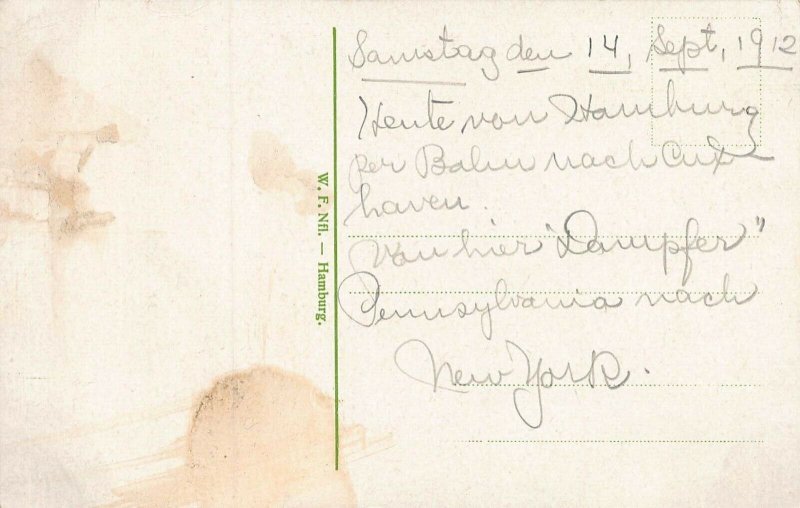 Samstag den 14, Sept, 1912
Heute von Hamburg
per Bahn nach Cux
haven.
Von hier "Dampfer"
Pennsylvania nach
New York.
W. F. Nfl. — Hamburg.